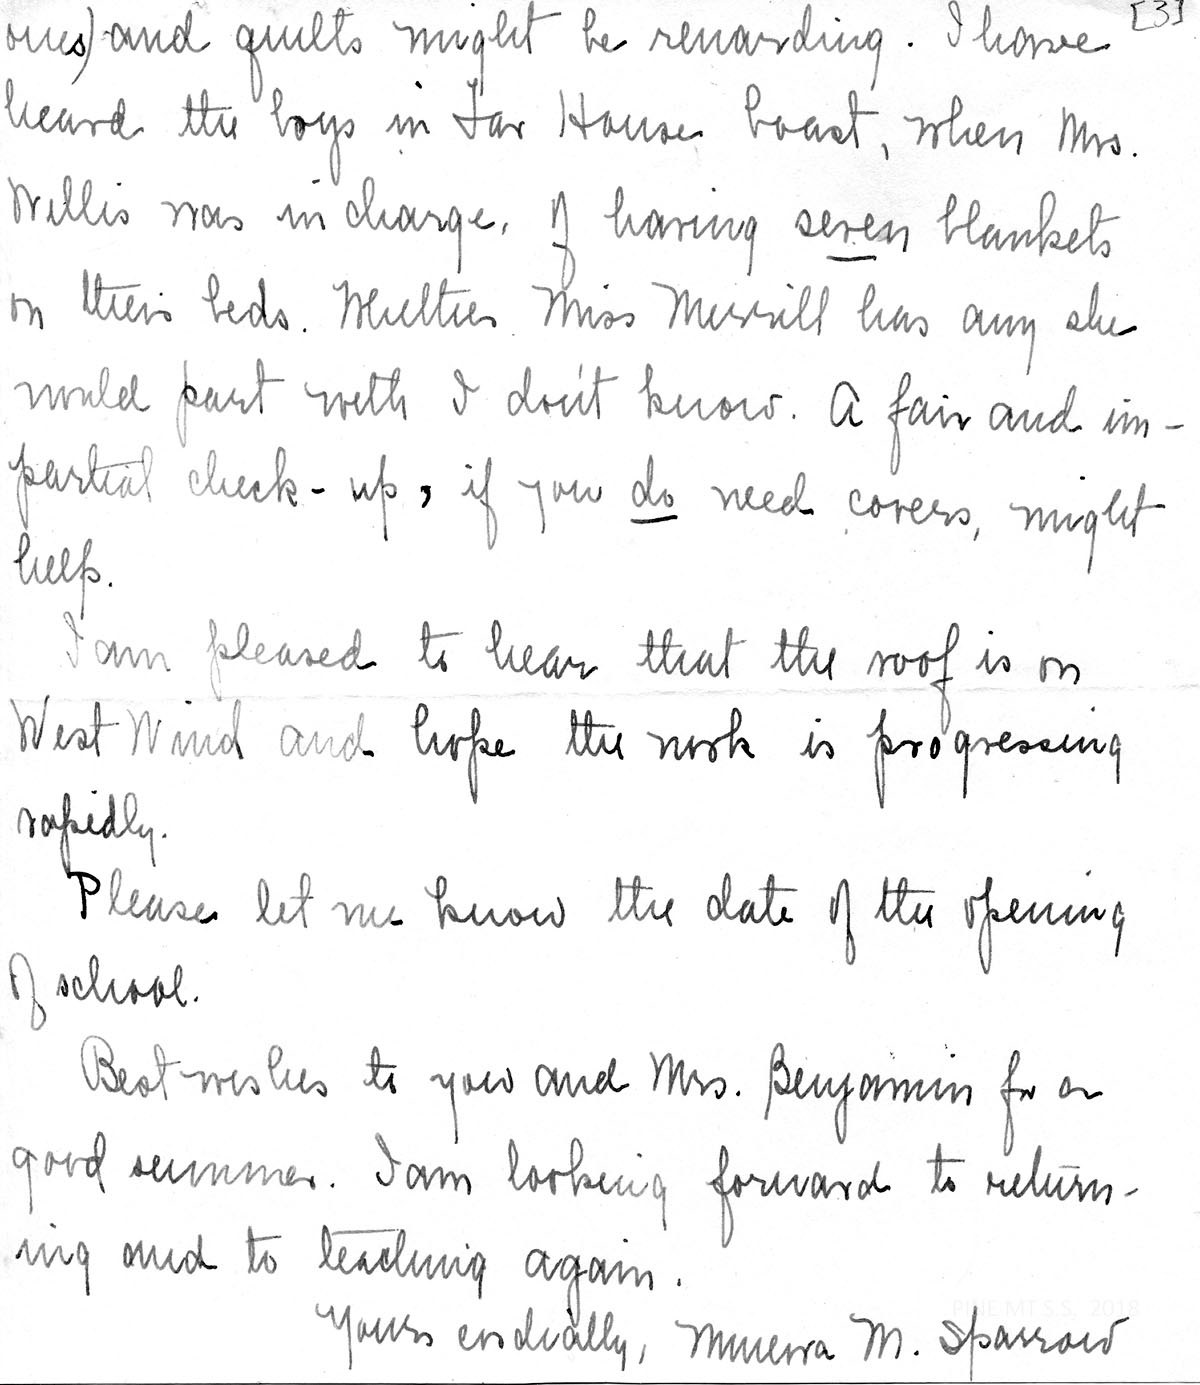 [3]
ones) and quilts might be rewarding. I have
heard the boys in Far House boast, when Mrs.
Willis was in charge, of having seven blankets
on their beds. Whether Miss Merrill has any she
would part with I don't know. A fair and im-
partial check-up, if you do need covers, might
help.
I am pleased to hear that the roof is on
West Wind and hope the work is progressing
rapidly.
Please let me know the date of the opening
of school.
Best wishes to you and Mrs. Benjamin for a
good summer. I am looking forward to return-
ing and to teaching again.
PINE MT S.S. 2018
Yours cordially, Minerva M. Sparrow